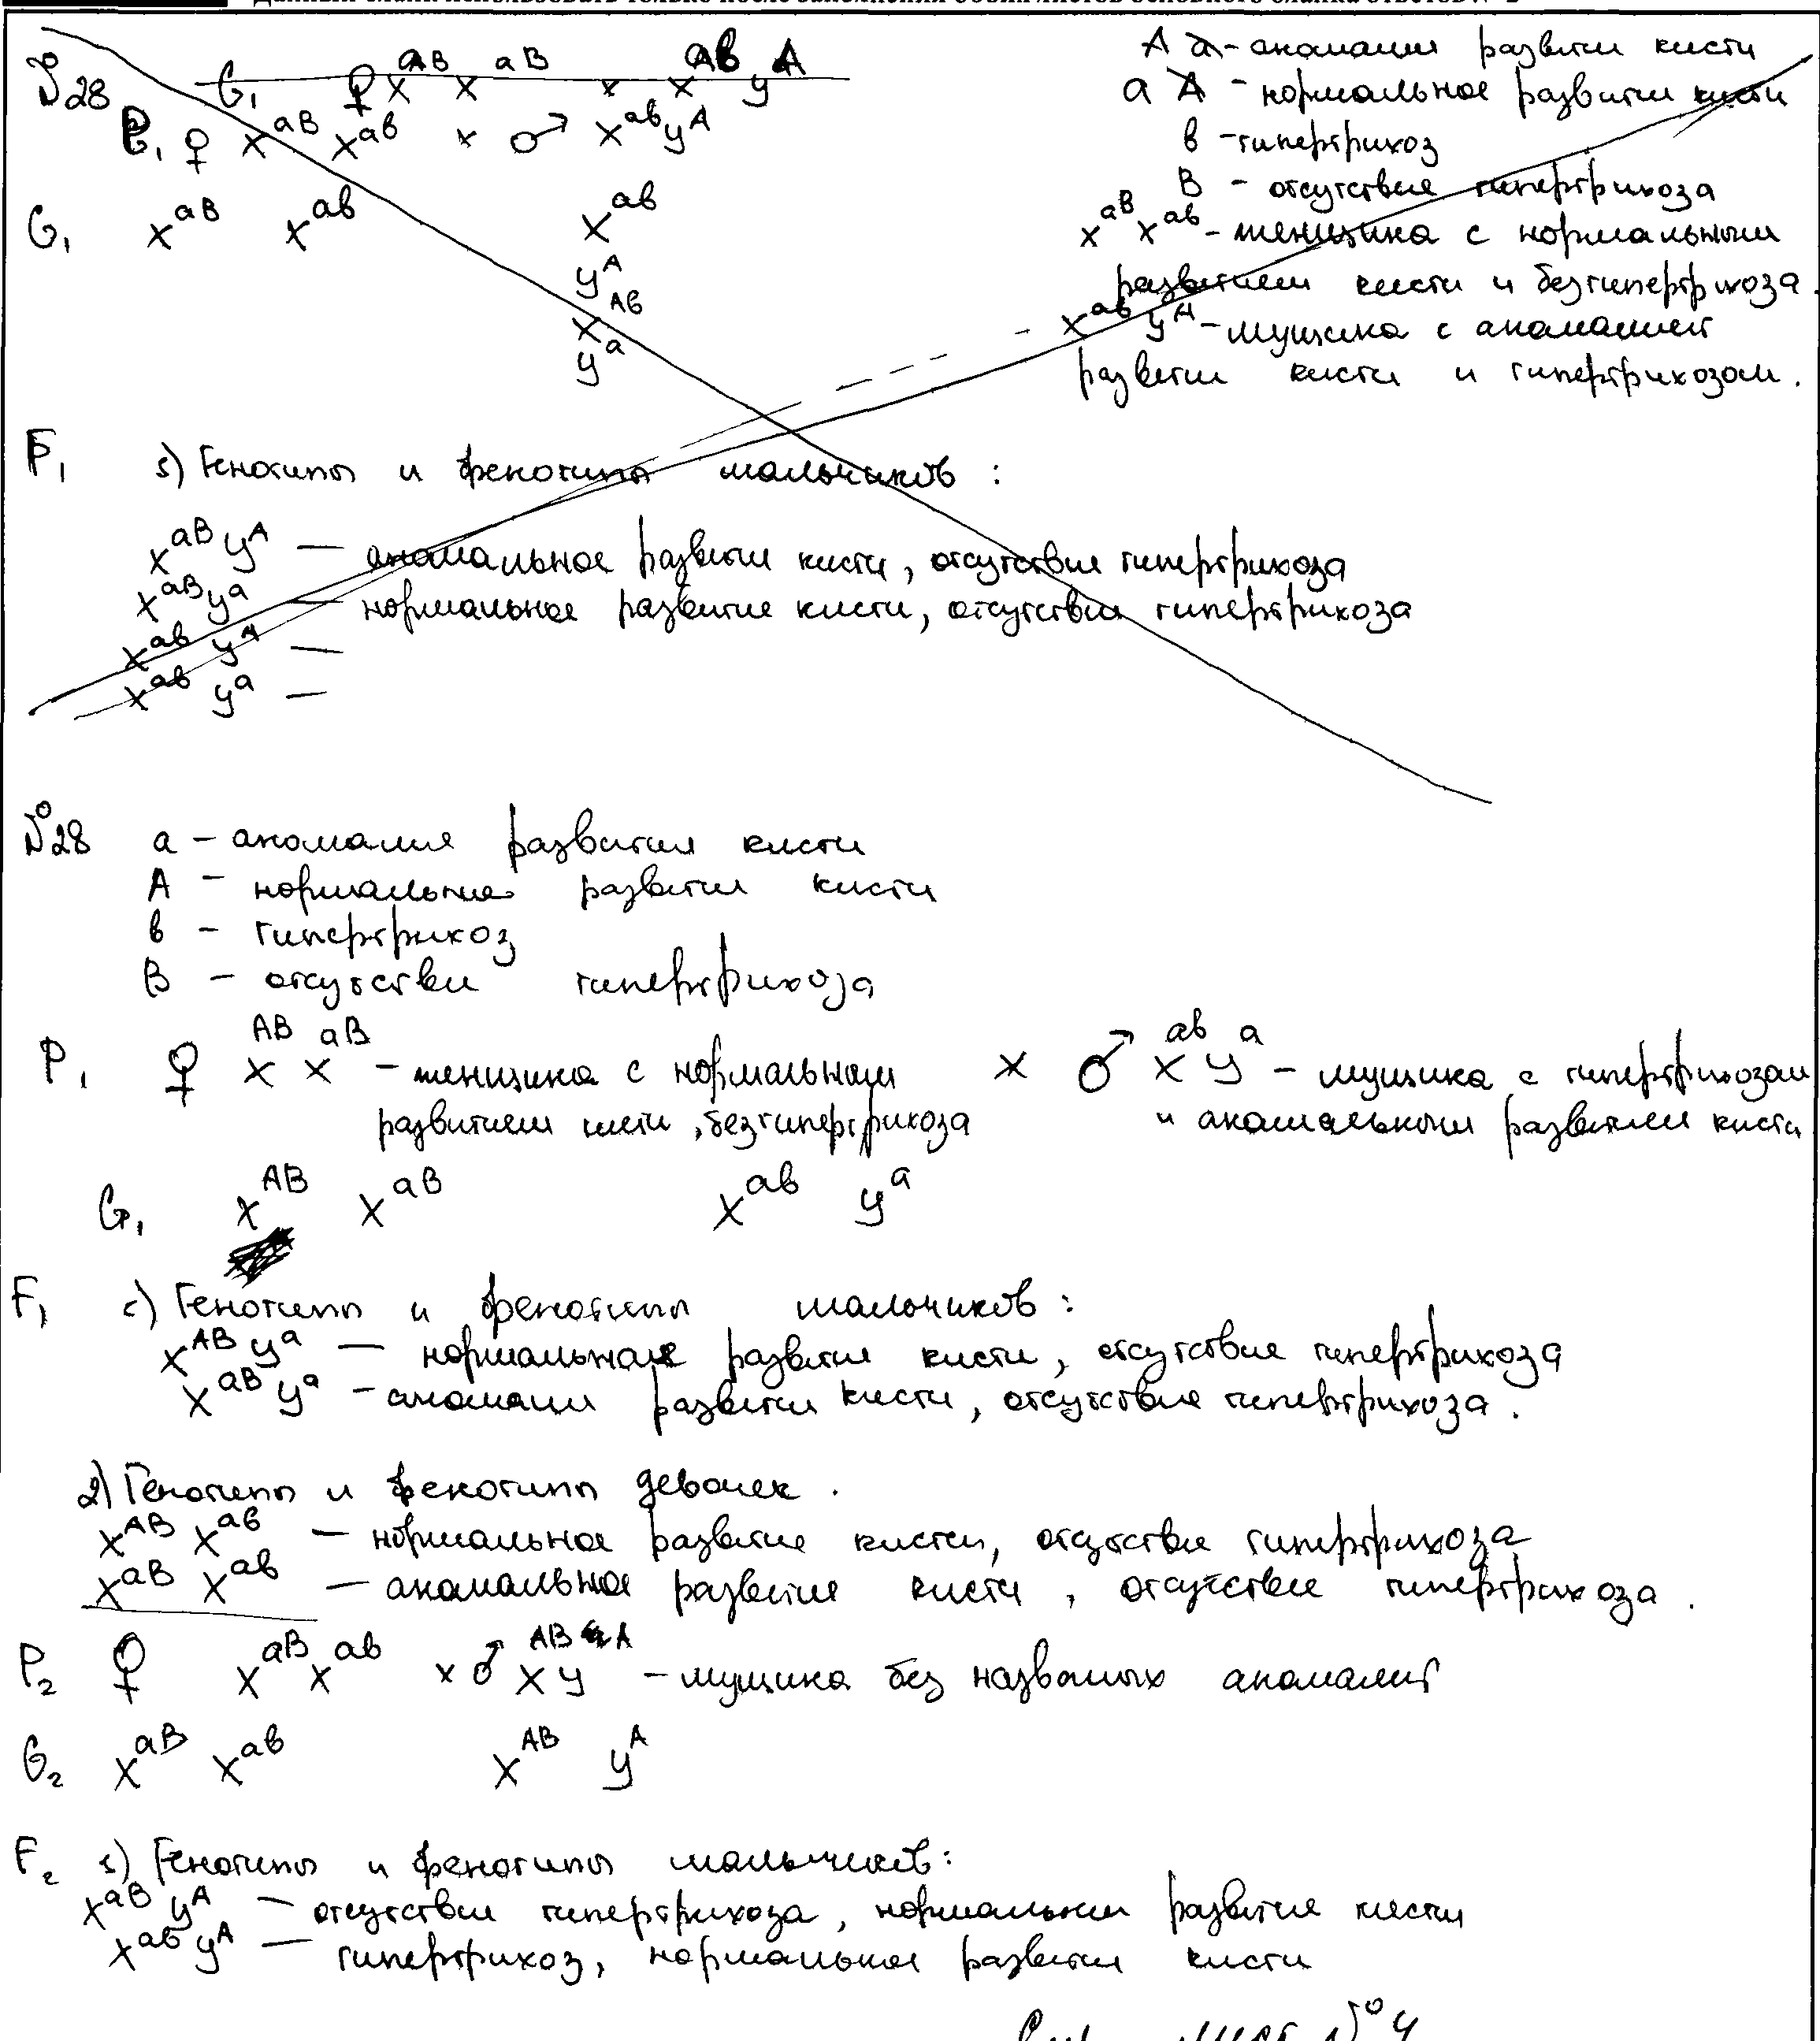 Данный бланк использовать только после заполнения обоих листов основного бланка ответов № 2
№28 G₁ ♀ X^AB X^aB × X^Ab y^A
P₁ ♀ X^aB X^ab × ♂ X^ab y^A
G₁ X^aB X^ab X^ab
y^A
X^Ab
y^a
A a - аномалия развити кисти
a A - нормальное развити кисти
b - гипертрихоз
B - отсутствие гипертрихоза
X^aB X^ab - женщина с нормальным
развитием кисти и без гипертрихоза.
X^ab y^A - мущина с аномалией
развити кисти и гипертрихозом.
F₁ 1) Генотипы и фенотипы мальчиков:
X^aB y^A — аномальное развити кисти, отсутствие гипертрихоза
X^aB y^a — нормальное развитие кисти, отсутствие гипертрихоза
X^ab y^A —
X^ab y^a —
№28 a - аномалия развития кисти
A - нормальное развити кисти
b - гипертрихоз
B - отсутстви гипертрихоза
P₁ ♀ X^AB X^aB - женщина с нормальным × ♂ X^ab y^a - мущина с гипертрихозом
развитием кисти, без гипертрихоза и аномальным развитием кисти
G₁ X^AB X^aB X^ab y^a
F₁ 1) Генотипы и фенотипы мальчиков:
X^AB y^a — нормальное развити кисти, отсутствие гипертрихоза
X^aB y^a - аномали развити кисти, отсутствие гипертрихоза.
2) Генотипы и фенотипы девочек.
X^AB X^ab — нормальное развитие кисти, отсутствие гипертрихоза
X^aB X^ab — аномальное развитие кисти, отсутствие гипертрихоза.
P₂ ♀ X^aB X^ab × ♂ X^AB y^A - мущина без названых аномалий
G₂ X^aB X^ab X^AB y^A
F₂ 1) Генотипы и фенотипы мальчиков:
X^aB y^A — отсутствие гипертрихоза, нормальное развитие кисти
X^ab y^A — гипертрихоз, нормальное развити кисти
лист №4